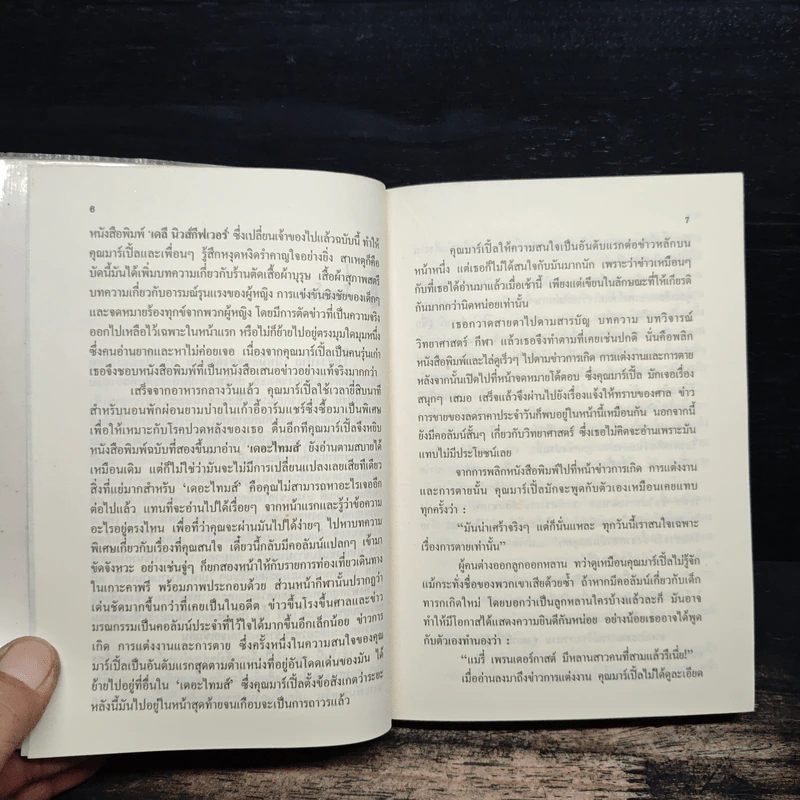 6
หนังสือพิมพ์ 'เดลี นิวส์กีฟเวอร์' ซึ่งเปลี่ยนเจ้าของไปแล้วฉบับนี้ ทำให้
คุณมาร์เปิ้ลและเพื่อนๆ รู้สึกหงุดหงิดรำคาญใจอย่างยิ่ง สาเหตุก็คือ
บัดนี้มันได้เพิ่มบทความเกี่ยวกับร้านตัดเสื้อผ้าบุรุษ เสื้อผ้าสุภาพสตรี
บทความเกี่ยวกับอารมณ์รุนแรงของผู้หญิง การแข่งขันชิงชัยของเด็กๆ
และจดหมายร้องทุกข์จากพวกผู้หญิง โดยมีการตัดข่าวที่เป็นความจริง
ออกไปเหลือไว้เฉพาะในหน้าแรก หรือไม่ก็ย้ายไปอยู่ตรงมุมใดมุมหนึ่ง
ซึ่งคนอ่านยากและหาไม่ค่อยเจอ เนื่องจากคุณมาร์เปิ้ลเป็นคนรุ่นเก่า
เธอจึงชอบหนังสือพิมพ์ที่เป็นหนังสือเสนอข่าวอย่างแท้จริงมากกว่า
เสร็จจากอาหารกลางวันแล้ว คุณมาร์เปิ้ลใช้เวลายี่สิบนาที
สำหรับนอนพักผ่อนยามบ่ายในเก้าอี้อาร์มแชร์ซึ่งซื้อมาเป็นพิเศษ
เพื่อให้เหมาะกับโรคปวดหลังของเธอ ตื่นอีกทีคุณมาร์เปิ้ลจึงหยิบ
หนังสือพิมพ์ฉบับที่สองขึ้นมาอ่าน 'เดอะไทมส์' ยังอ่านตามสบายได้
เหมือนเดิม แต่ก็ไม่ใช่ว่ามันจะไม่มีการเปลี่ยนแปลงเลยเสียทีเดียว
สิ่งที่แย่มากสำหรับ 'เดอะไทมส์' คือคุณไม่สามารถหาอะไรเจออีก
ต่อไปแล้ว แทนที่จะอ่านไปได้เรื่อยๆ จากหน้าแรกและรู้ว่าข้อความ
อะไรอยู่ตรงไหน เพื่อที่ว่าคุณจะผ่านมันไปได้ง่ายๆ ไปหาบทความ
พิเศษเกี่ยวกับเรื่องที่คุณสนใจ เดี๋ยวนี้กลับมีคอลัมน์แปลกๆ เข้ามา
ขัดจังหวะ อย่างเช่นจู่ๆ ก็ยกสองหน้าให้กับรายการท่องเที่ยวเดินทาง
ในเกาะคาพรี พร้อมภาพประกอบด้วย ส่วนหน้ากีฬานั้นปรากฏว่า
เด่นชัดมากขึ้นกว่าที่เคยเป็นในอดีต ข่าวขึ้นโรงขึ้นศาลและข่าว
มรณกรรมเป็นคอลัมน์ประจำที่ไว้ใจได้มากขึ้นอีกเล็กน้อย ข่าวการ
เกิด การแต่งงานและการตาย ซึ่งครั้งหนึ่งในความสนใจของคุณ
มาร์เปิ้ลเป็นอันดับแรกสุดตามตำแหน่งที่อยู่อันโดดเด่นของมัน ได้
ย้ายไปอยู่ที่อื่นใน 'เดอะไทมส์' ซึ่งคุณมาร์เปิ้ลตั้งข้อสังเกตว่าระยะ
หลังนี้มันไปอยู่ในหน้าสุดท้ายจนเกือบจะเป็นการถาวรแล้ว
7
คุณมาร์เปิ้ลให้ความสนใจเป็นอันดับแรกต่อข่าวหลักบน
หน้าหนึ่ง แต่เธอก็ไม่ได้สนใจกับมันมากนัก เพราะว่าข่าวเหมือนๆ
กับที่เธอได้อ่านมาแล้วเมื่อเช้านี้ เพียงแต่เขียนในลักษณะที่ให้เกียรติ
กันมากกว่านิดหน่อยเท่านั้น
เธอกวาดสายตาไปตามสารบัญ บทความ บทวิจารณ์
วิทยาศาสตร์ กีฬา แล้วเธอจึงทำตามที่เคยเช่นปกติ นั่นคือพลิก
หนังสือพิมพ์และไล่ดูเร็วๆ ไปตามข่าวการเกิด การแต่งงานและการตาย
หลังจากนั้นเปิดไปที่หน้าจดหมายโต้ตอบ ซึ่งคุณมาร์เปิ้ล มักเจอเรื่อง
สนุกๆ เสมอ เสร็จแล้วจึงผ่านไปยังเรื่องแจ้งให้ทราบของศาล ข่าว
การขายของลดราคาประจำวันก็พบอยู่ในหน้านี้เหมือนกัน นอกจากนี้
ยังมีคอลัมน์สั้นๆ เกี่ยวกับวิทยาศาสตร์ ซึ่งเธอไม่คิดจะอ่านเพราะมัน
แทบไม่มีประโยชน์เลย
จากการพลิกหนังสือพิมพ์ไปที่หน้าข่าวการเกิด การแต่งงาน
และการตายนั้น คุณมาร์เปิ้ลมักจะพูดกับตัวเองเหมือนเคยแทบ
ทุกครั้งว่า :
"มันน่าเศร้าจริงๆ แต่ก็นั่นแหละ ทุกวันนี้เราสนใจเฉพาะ
เรื่องการตายเท่านั้น"
ผู้คนต่างออกลูกออกหลาน ทว่าดูเหมือนคุณมาร์เปิ้ลไม่รู้จัก
แม้กระทั่งชื่อของพวกเขาเสียด้วยซ้ำ ถ้าหากมีคอลัมน์เกี่ยวกับเด็ก
ทารกเกิดใหม่ โดยบอกว่าเป็นลูกหลานใครบ้างแล้วละก็ มันอาจ
ทำให้มีโอกาสได้แสดงความยินดีกันหน่อย อย่างน้อยเธออาจได้พูด
กับตัวเองทำนองว่า :
"แมรี่ เพรนเดอร์กาสต์ มีหลานสาวคนที่สามแล้วรึเนี่ย!"
เมื่ออ่านลงมาถึงข่าวการแต่งงาน คุณมาร์เปิ้ลไม่ได้ดูละเอียด